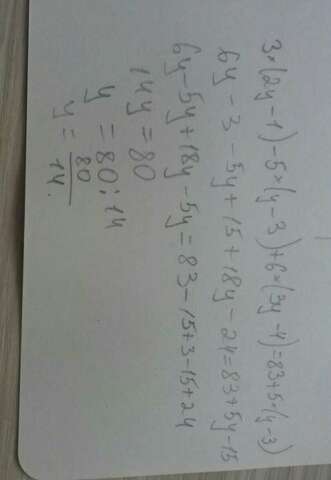 3*(2y-1)-5*(y-3)+6*(3y-4)=83+5*(y-3)
6y-3-5y+15+18y-24=83+5y-15
6y-5y+18y-5y=83-15+3-15+24
14y=80
y=80:14
y=80/14.